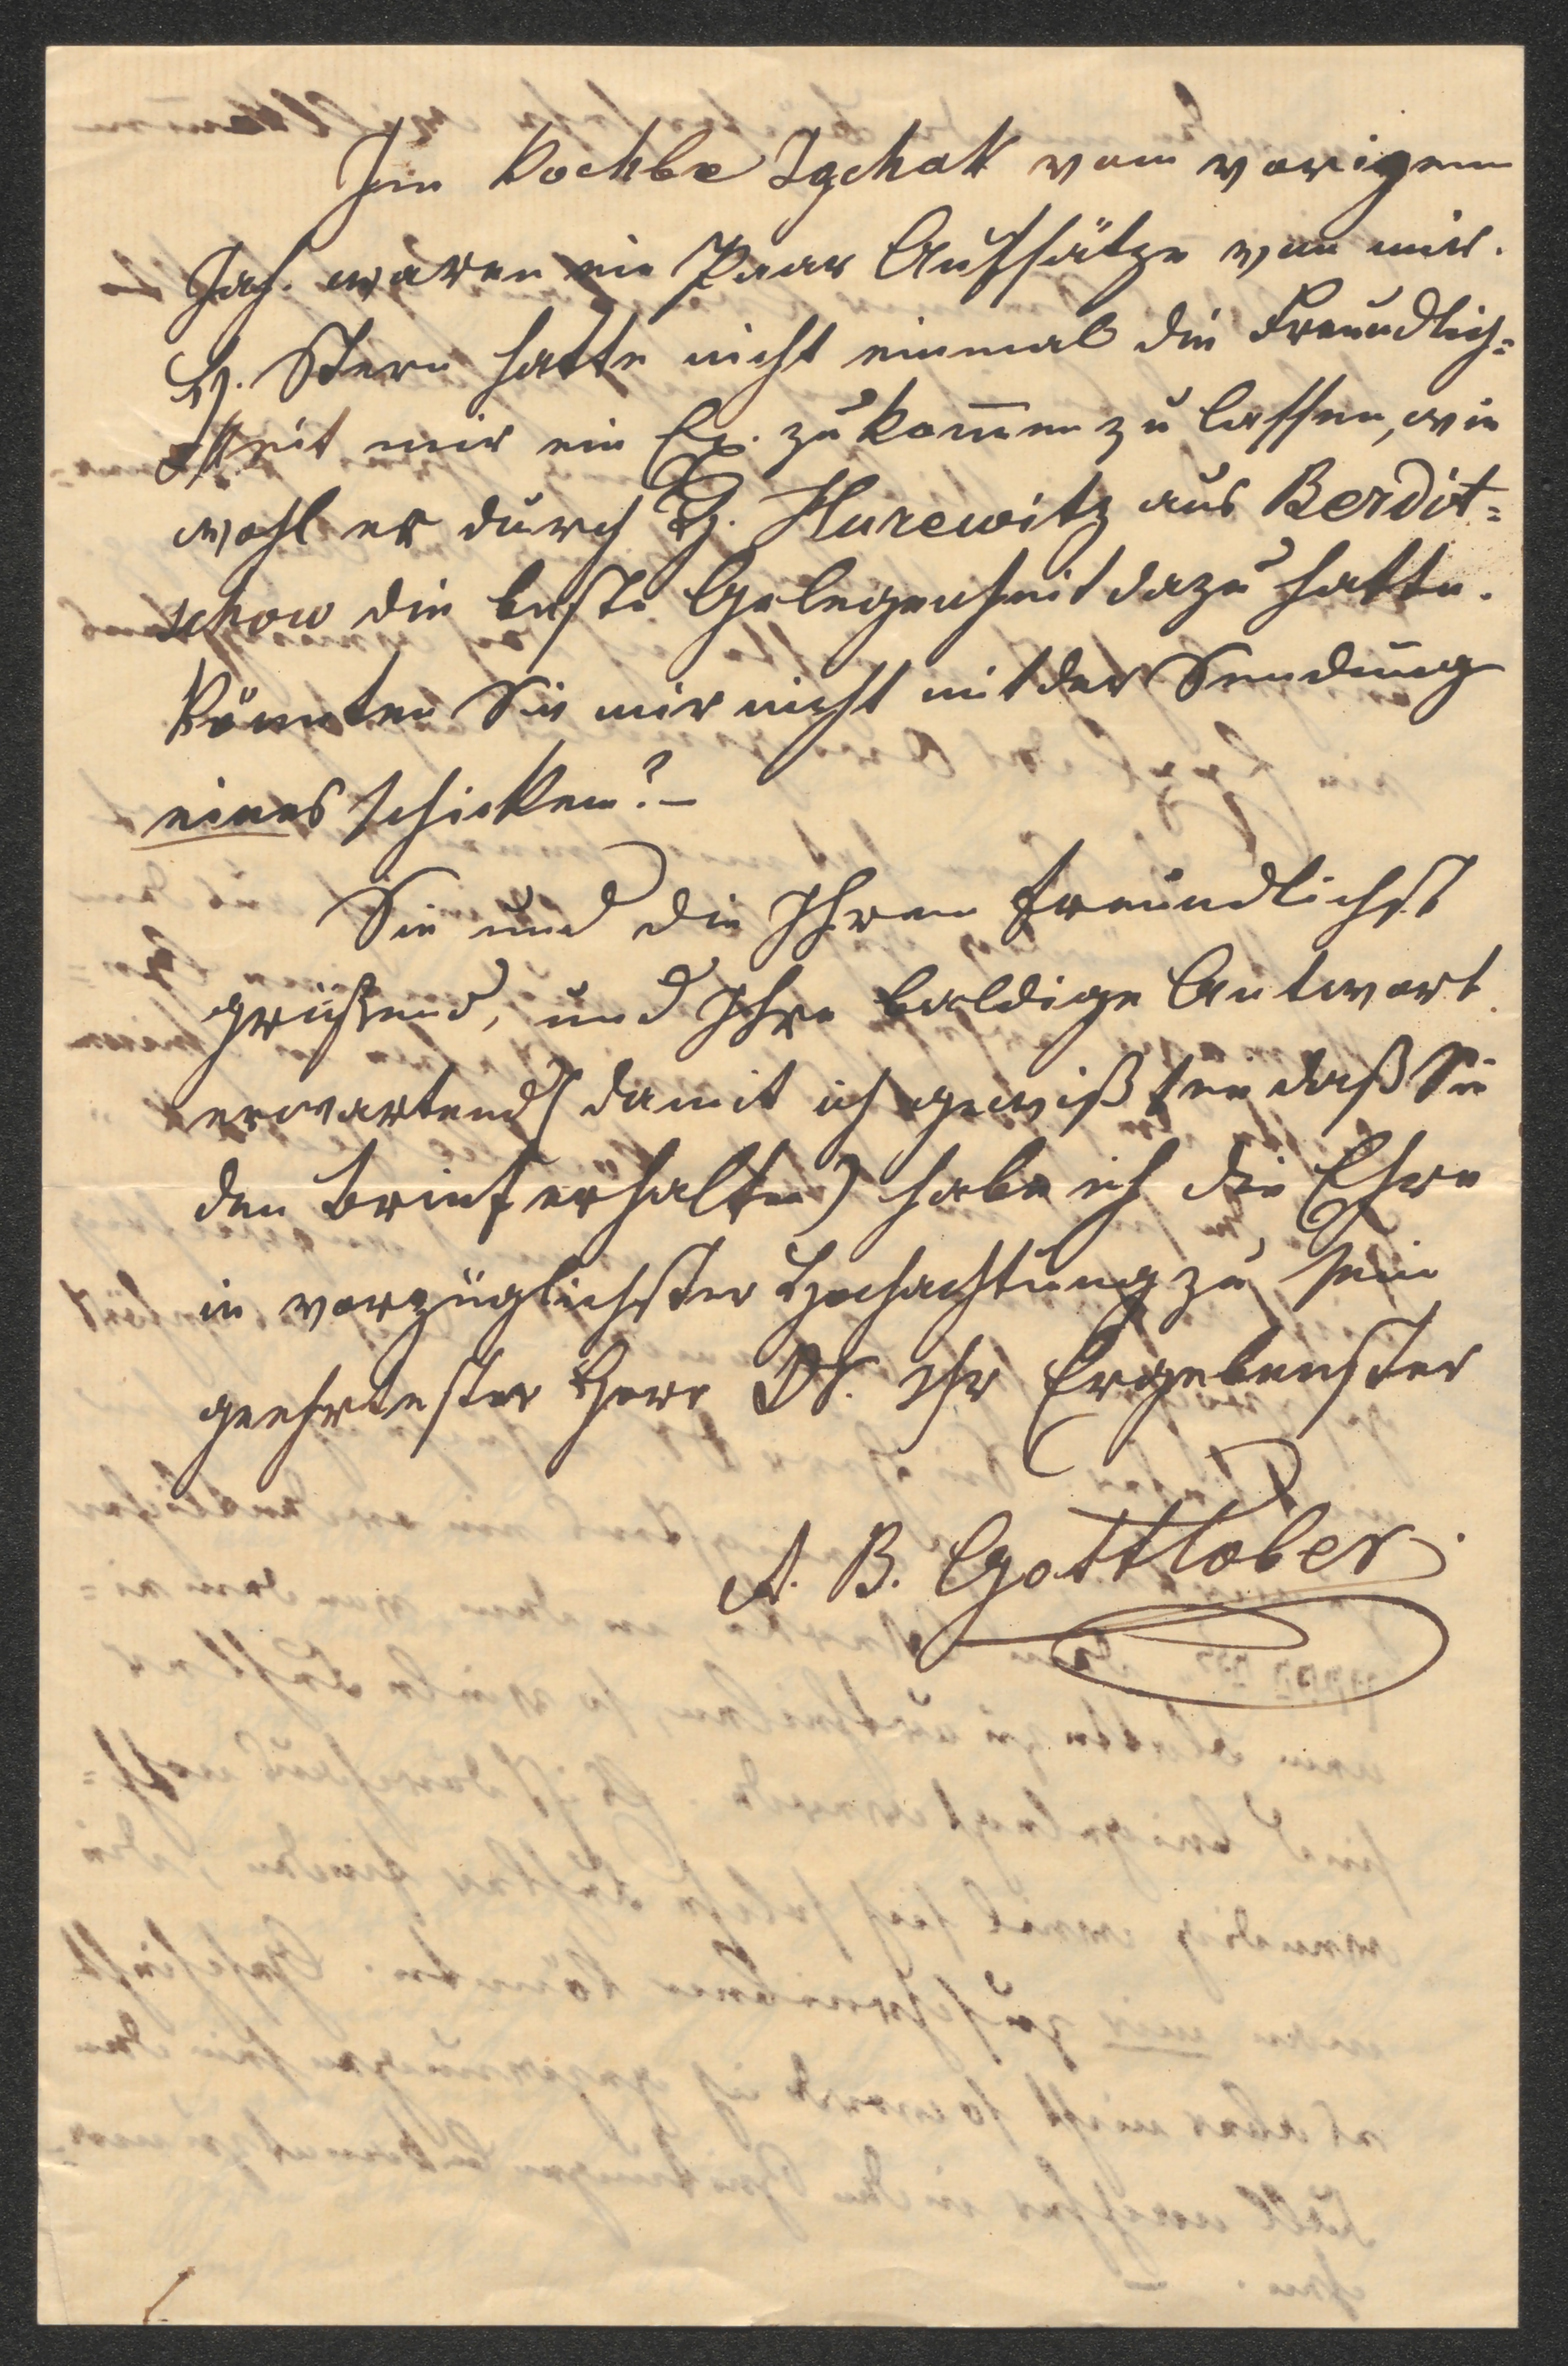 Im Kochbe Jgchak vom vorigem
Jah. waren ein Paar Aufsätze von mir.
H. Stern hatte nicht einmal die Freundlich=
keit mir ein Ex. zukom̅en zu lassen, wie
wohl er durch H. Hurewitz aus Berdit=
schow die beste Gelegenheit dazu hatte.
Könnten Sie mir nicht mit der Sendung
eines schicken? –
Sie und die Ihren freundlichst
grüßend, und Ihre baldige Antwort
erwartend (damit ich gewiß sei daß Sie
den Brief erhalten) habe ich die Ehre
in vorzüglichster Hochachtung zu sein
geehrtester Herr Dr. Ihr Ergebenster
A. B. Gottlober.